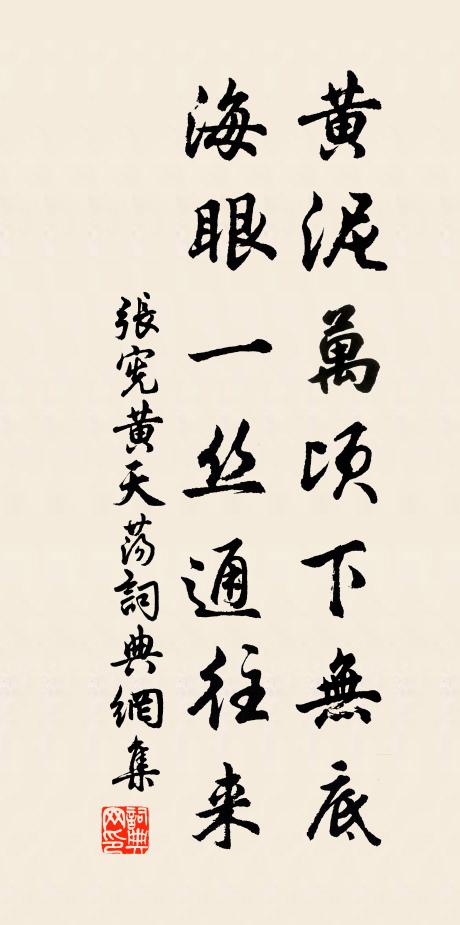 黄泥萬頃下無底
海眼一丝通往来
張宪黄天荡詞典網集
詞典
网印